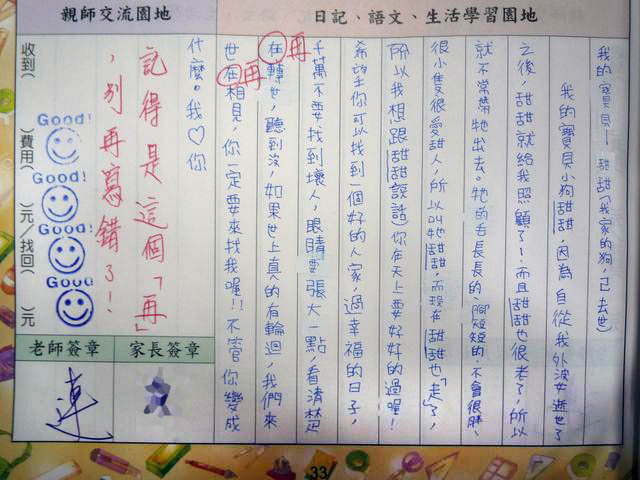 日記、語文、生活學習園地
我的寶貝—甜甜(我家的狗,已去世)
我的寶貝小狗甜甜,因為自從我外婆逝世了
之後,甜甜就給我照顧了!而且甜甜也很老了,所以
就不常帶牠出去。牠的舌長長的、腳短短的、不會很胖、
很小隻很愛甜人,所以叫牠甜甜,而現在甜甜也「走」了,
所以我想跟甜甜說話:你在天上要好好的過喔!
希望你可以找到一個好的人家,過幸福的日子,
千萬不要找到壞人,眼睛要張大一點,看清楚
再
在轉世,聽到沒,如果世上真的有輪迴,我們來
再
世在相見,你一定要來找我喔!!不管你變成
什麼。我♡你
親師交流園地
記得是這個「再」
,別再寫錯了!
Good!
Good!
Good!
Good
收到( )費用( )元/找回( )元
家長簽章
老師簽章
連
33